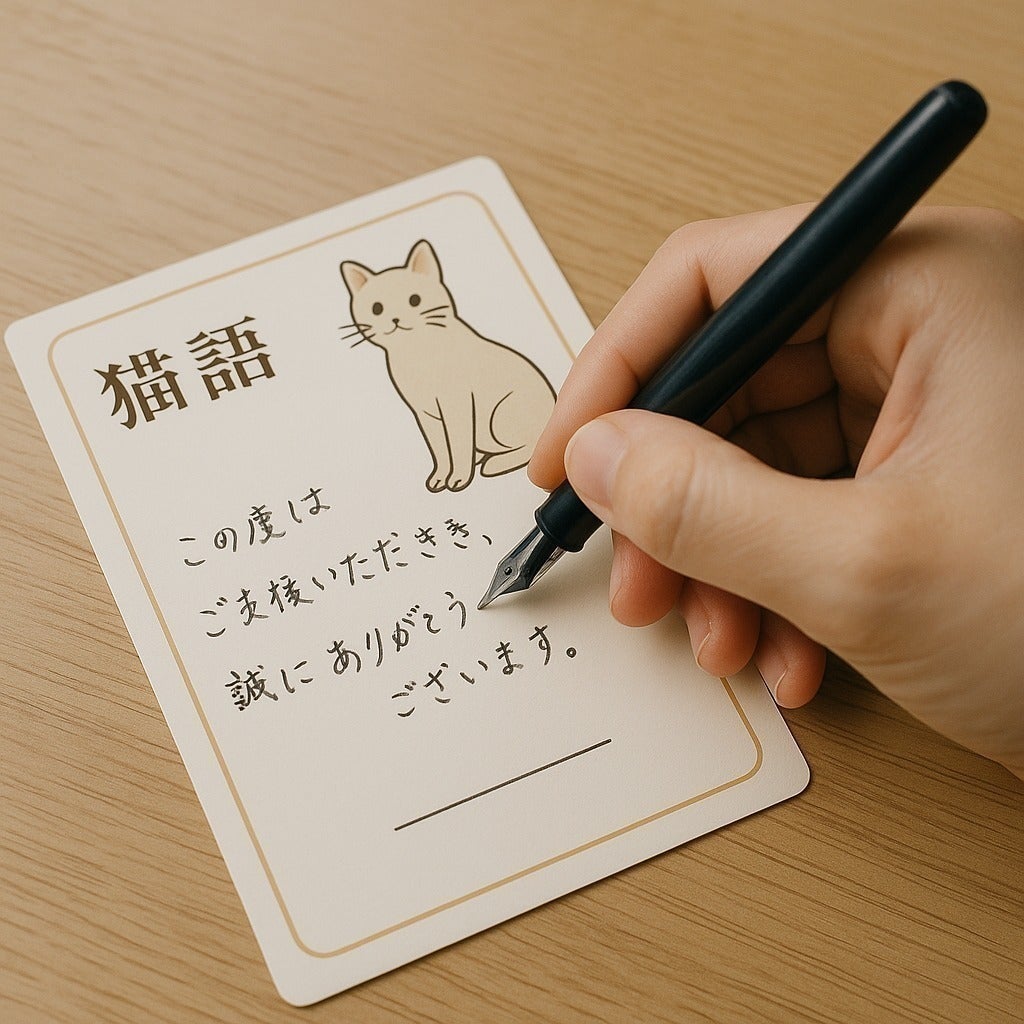 猫語
この度は
ご支援いただきき、
誠にありがとう
ございます。